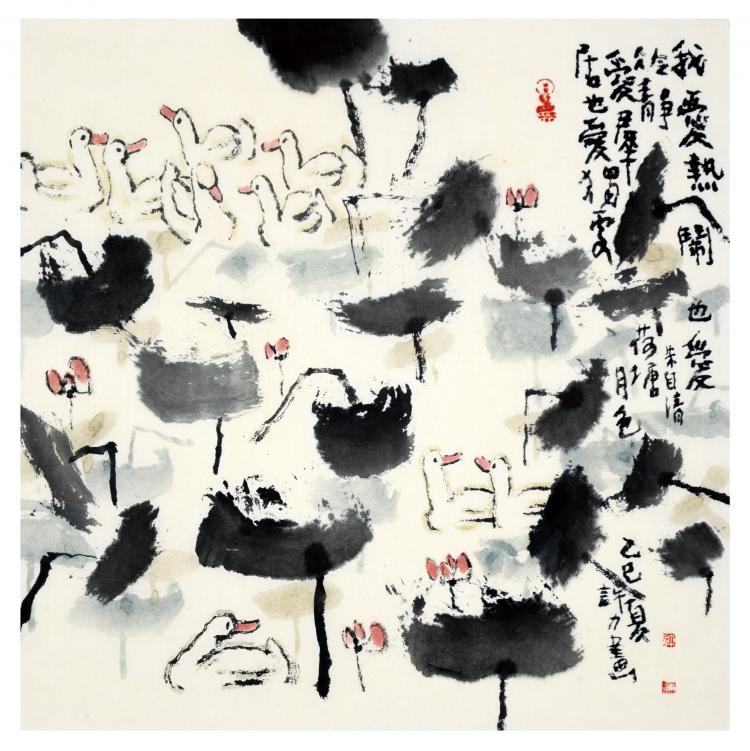 我愛熱鬧也愛
冷静
愛羣
居也愛獨處
朱自清
荷塘月色
乙巳夏
許力畫